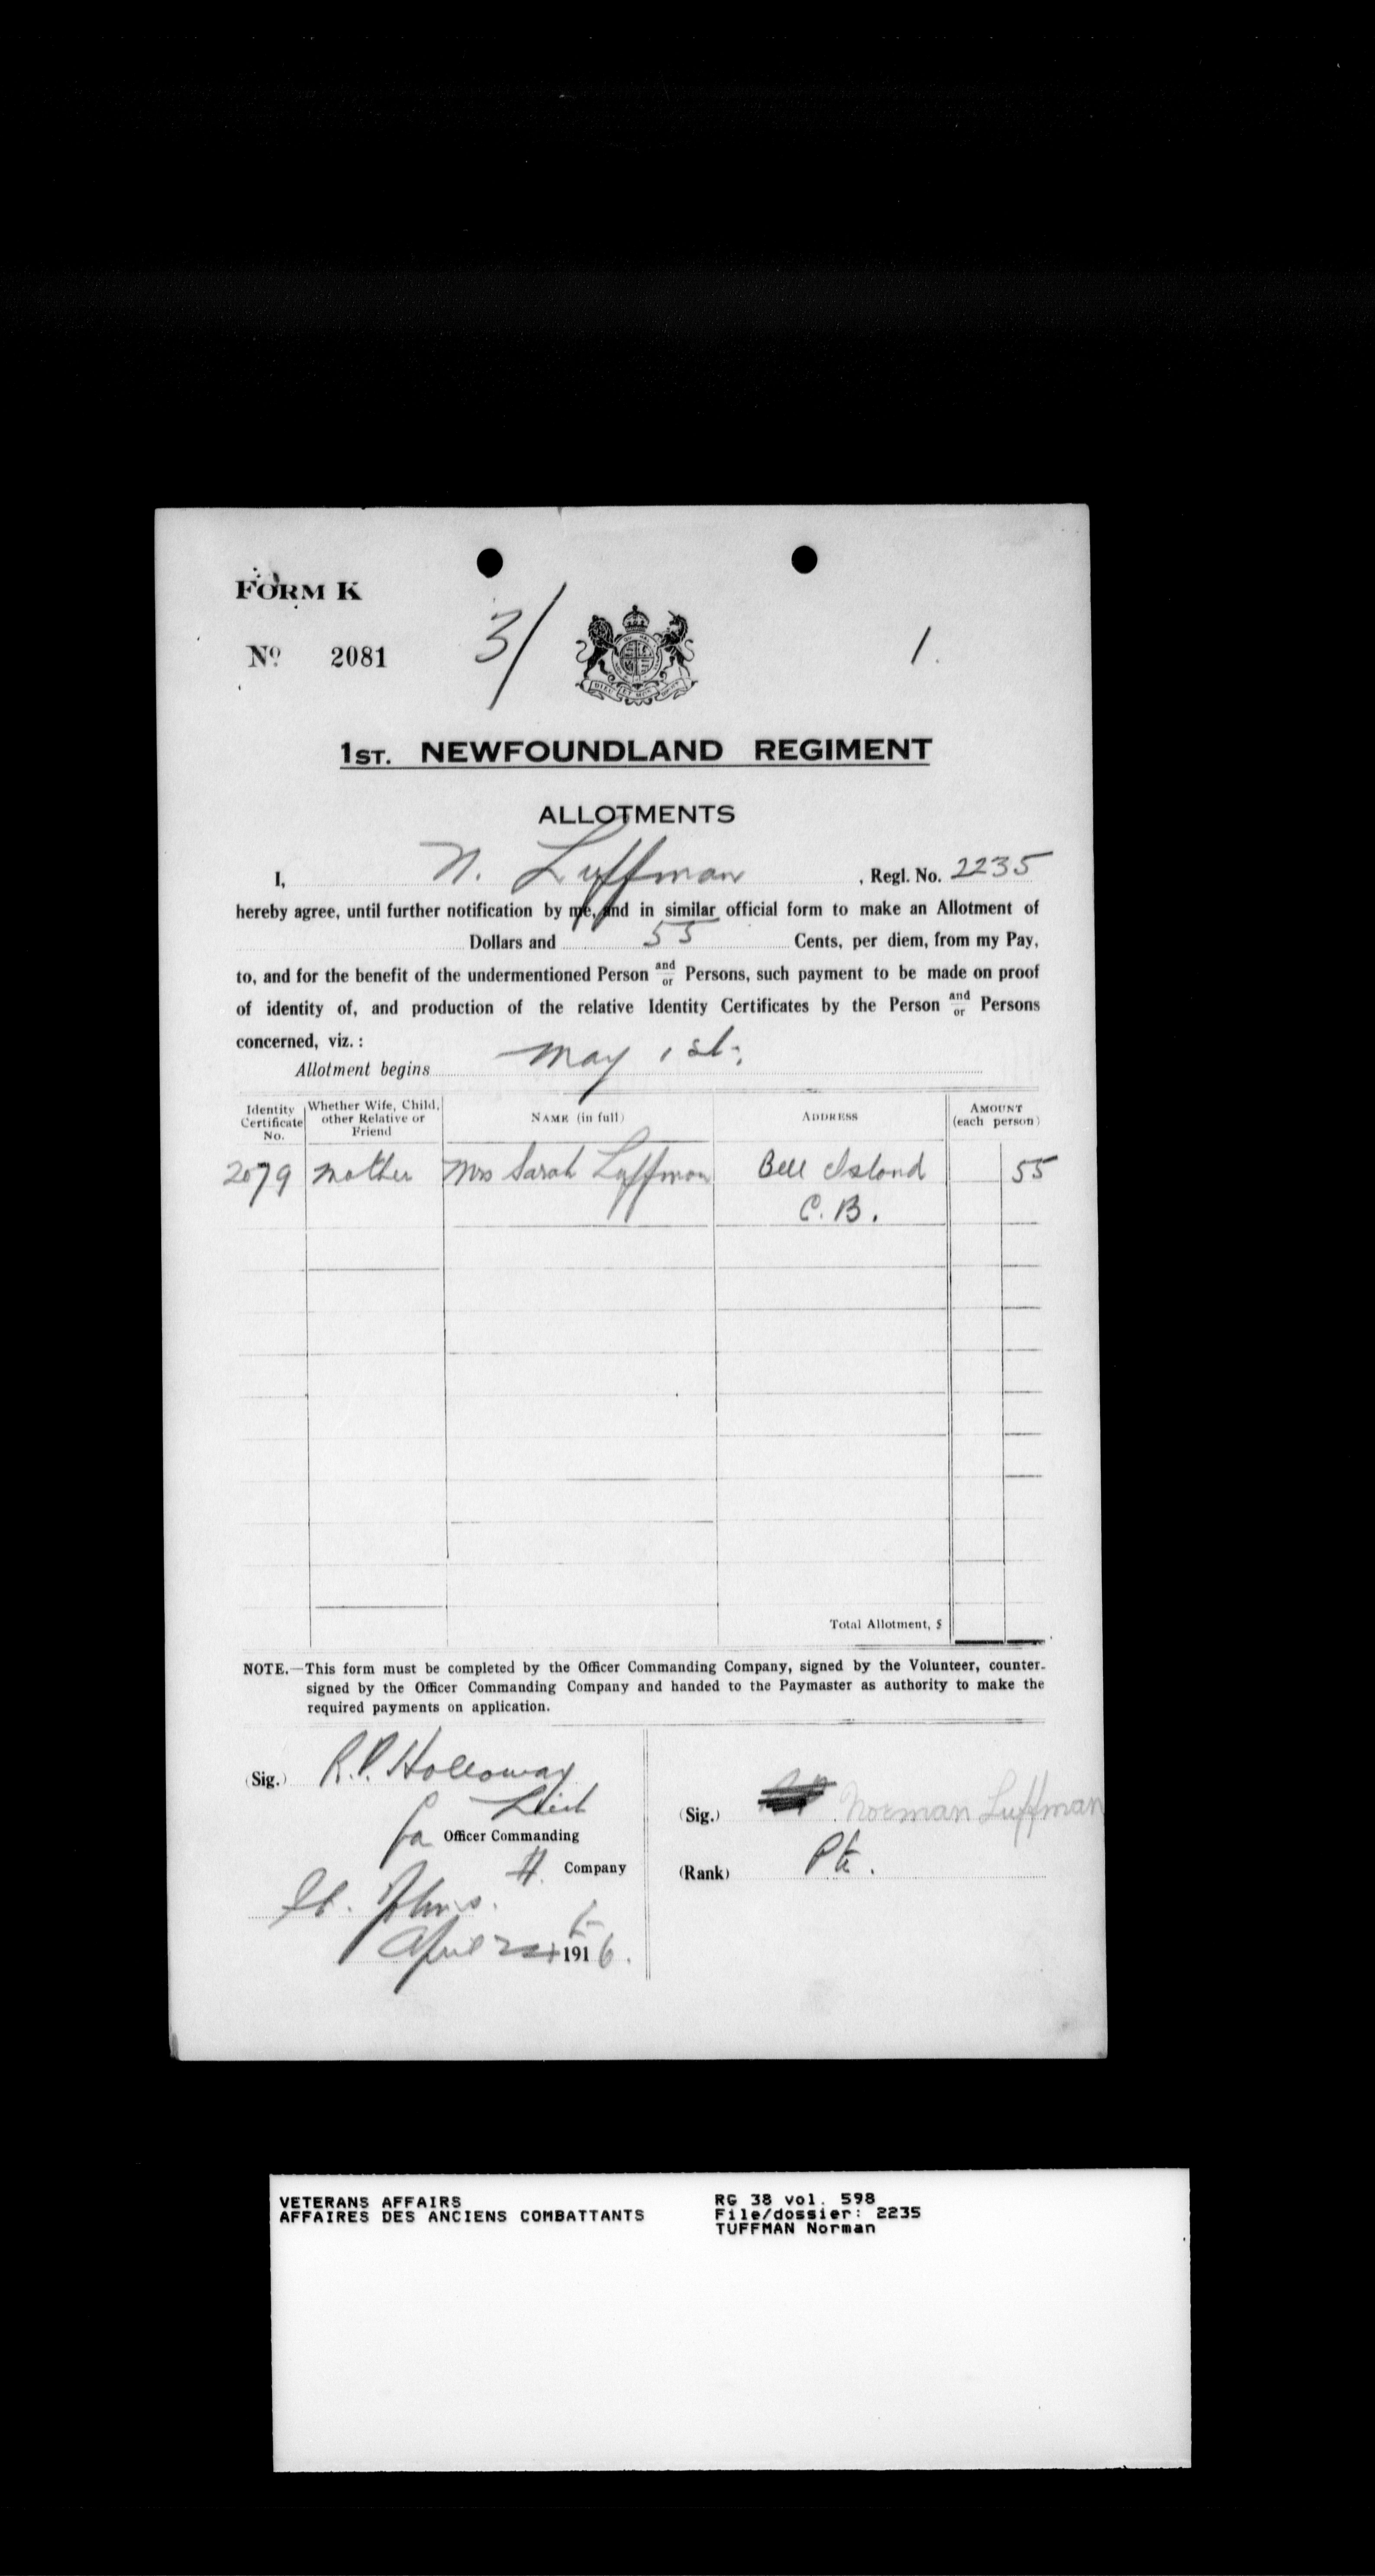 FORM K
3/
1.
No. 2081
1ST. NEWFOUNDLAND REGIMENT
ALLOTMENTS
I, N. Luffman, Regl. No. 2235
hereby agree, until further notification by me, and in similar official form to make an Allotment of
Dollars and 55 Cents, per diem, from my Pay,
to, and for the benefit of the undermentioned Person and/or Persons, such payment to be made on proof
of identity of, and production of the relative Identity Certificates by the Person and/or Persons
concerned, viz. :
Allotment begins May 1st,
Identity Certificate No. Whether Wife, Child, other Relative or Friend NAME (in full) ADDRESS AMOUNT (each person)
2079 Mother Mrs Sarah Luffman Bell Island 55
C. B.
Total Allotment, $
NOTE.—This form must be completed by the Officer Commanding Company, signed by the Volunteer, counter-
signed by the Officer Commanding Company and handed to the Paymaster as authority to make the
required payments on application.
(Sig.) R.P. Holloway
Lieut
for Officer Commanding
H Company
St. Johns.
April 1916.
(Sig.) Norman Luffman
(Rank) Pte.
VETERANS AFFAIRS
AFFAIRES DES ANCIENS COMBATTANTS
RG 38 vol. 598
File/dossier: 2235
TUFFMAN Norman